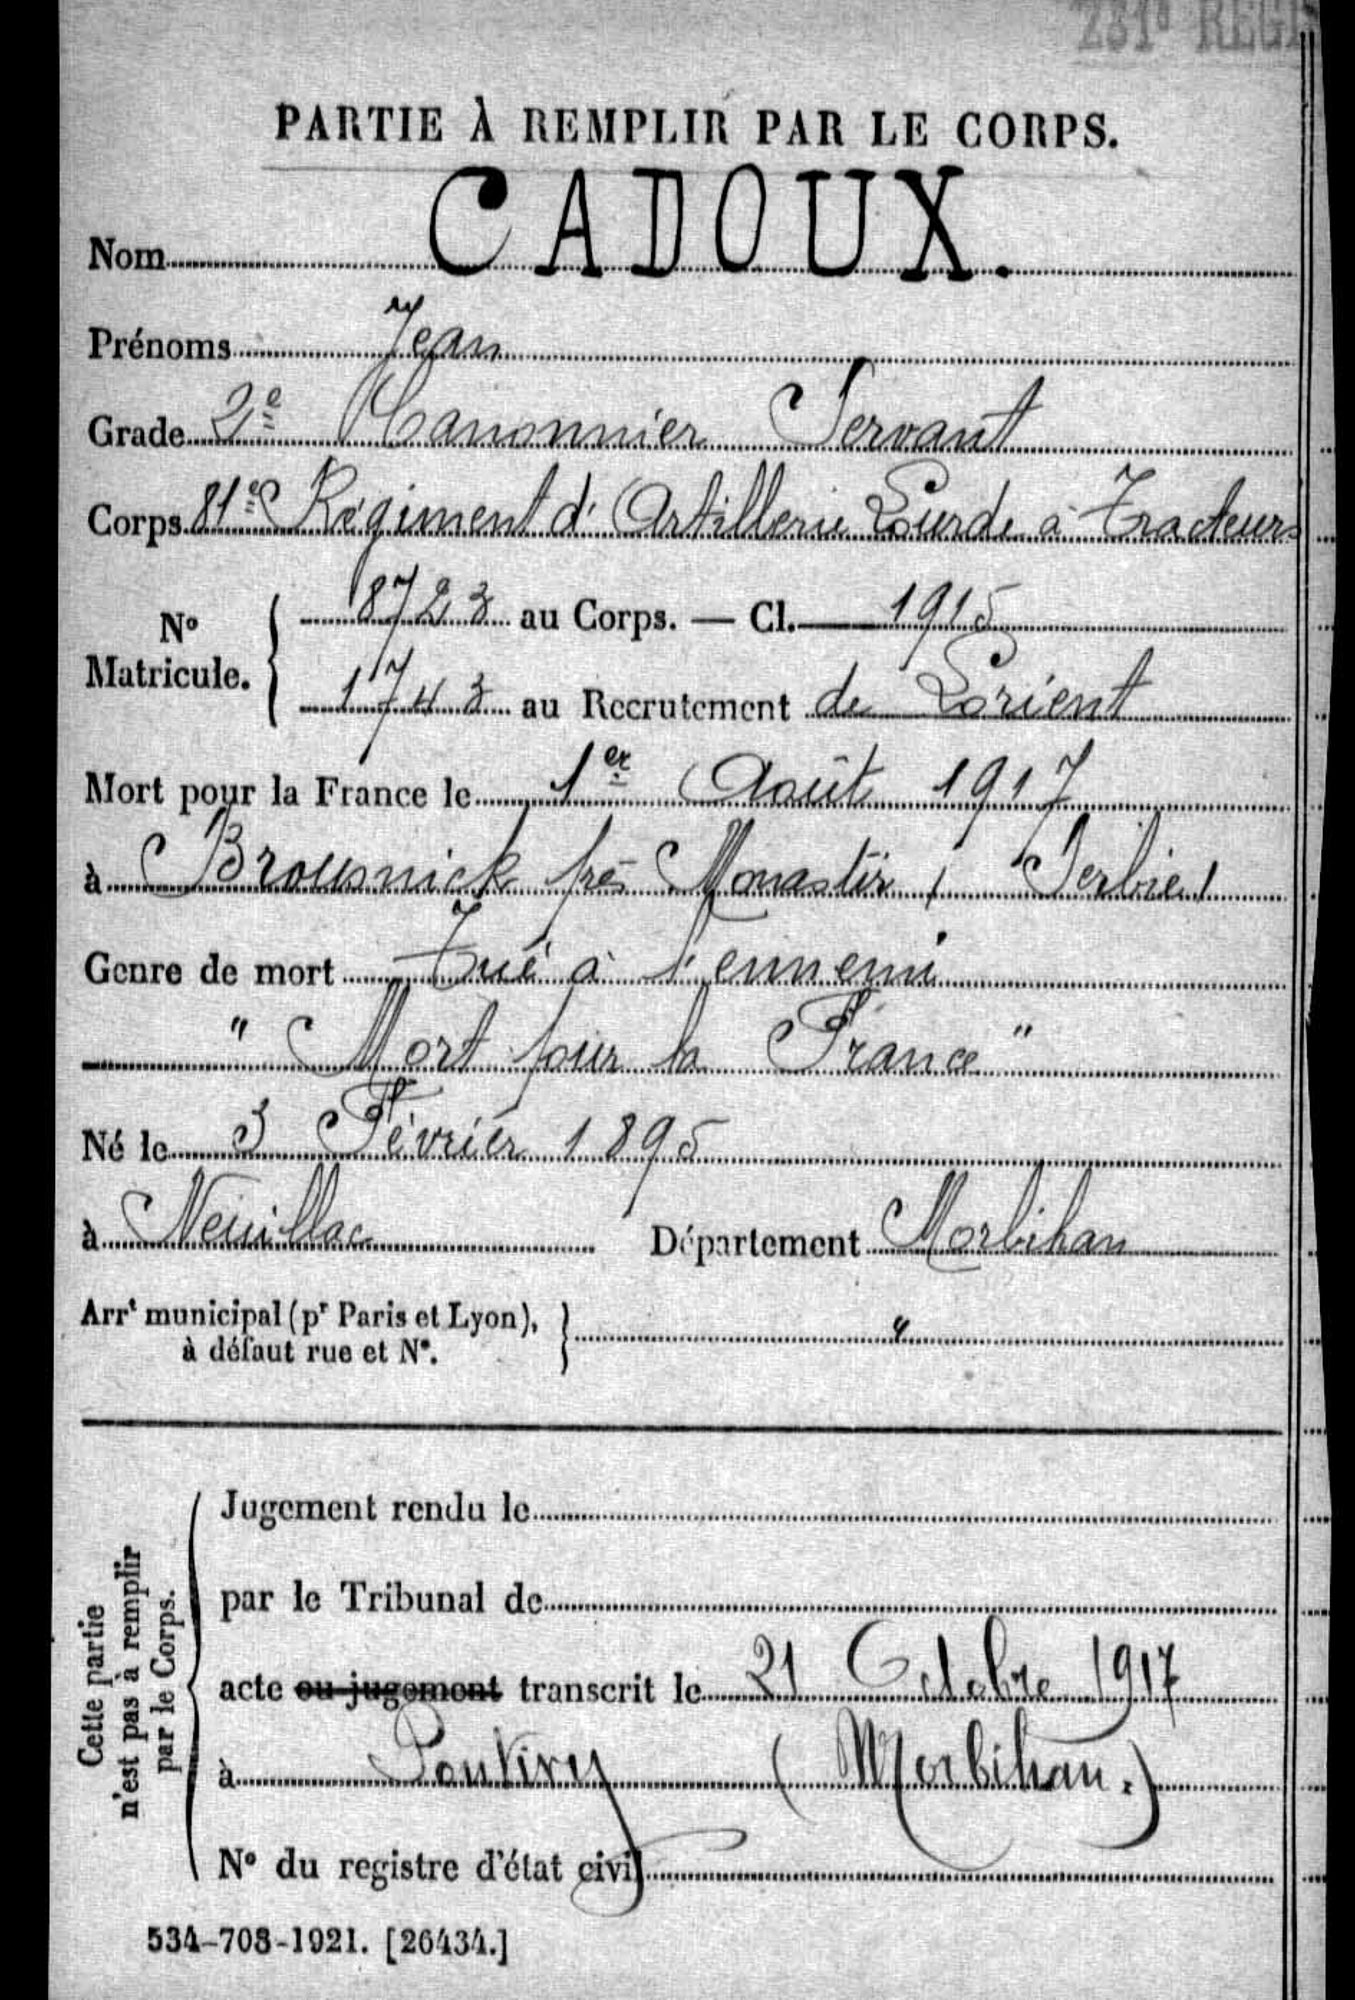 281e REGI
PARTIE À REMPLIR PAR LE CORPS.
Nom CADOUX.
Prénoms Jean
Grade 2e Canonnier Servant
Corps 81e Régiment d'Artillerie Lourde à Tracteurs
No Matricule. { 8723 au Corps. — Cl. 1915
1743 au Recrutement de Lorient
Mort pour la France le 1er Août 1917
à Brousnick près Monastir (Serbie)
Genre de mort Tué à l'ennemi
" Mort pour la France "
Né le 3 Février 1895
à Neuillac Département Morbihan
Arrt municipal (pr Paris et Lyon), } "
à défaut rue et No.
Cette partie
n'est pas à remplir
par le Corps.
Jugement rendu le
par le Tribunal de
acte ou jugement transcrit le 21 Octobre 1917
à Pontivy (Morbihan.)
No du registre d'état civil
534-708-1921. [26434.]